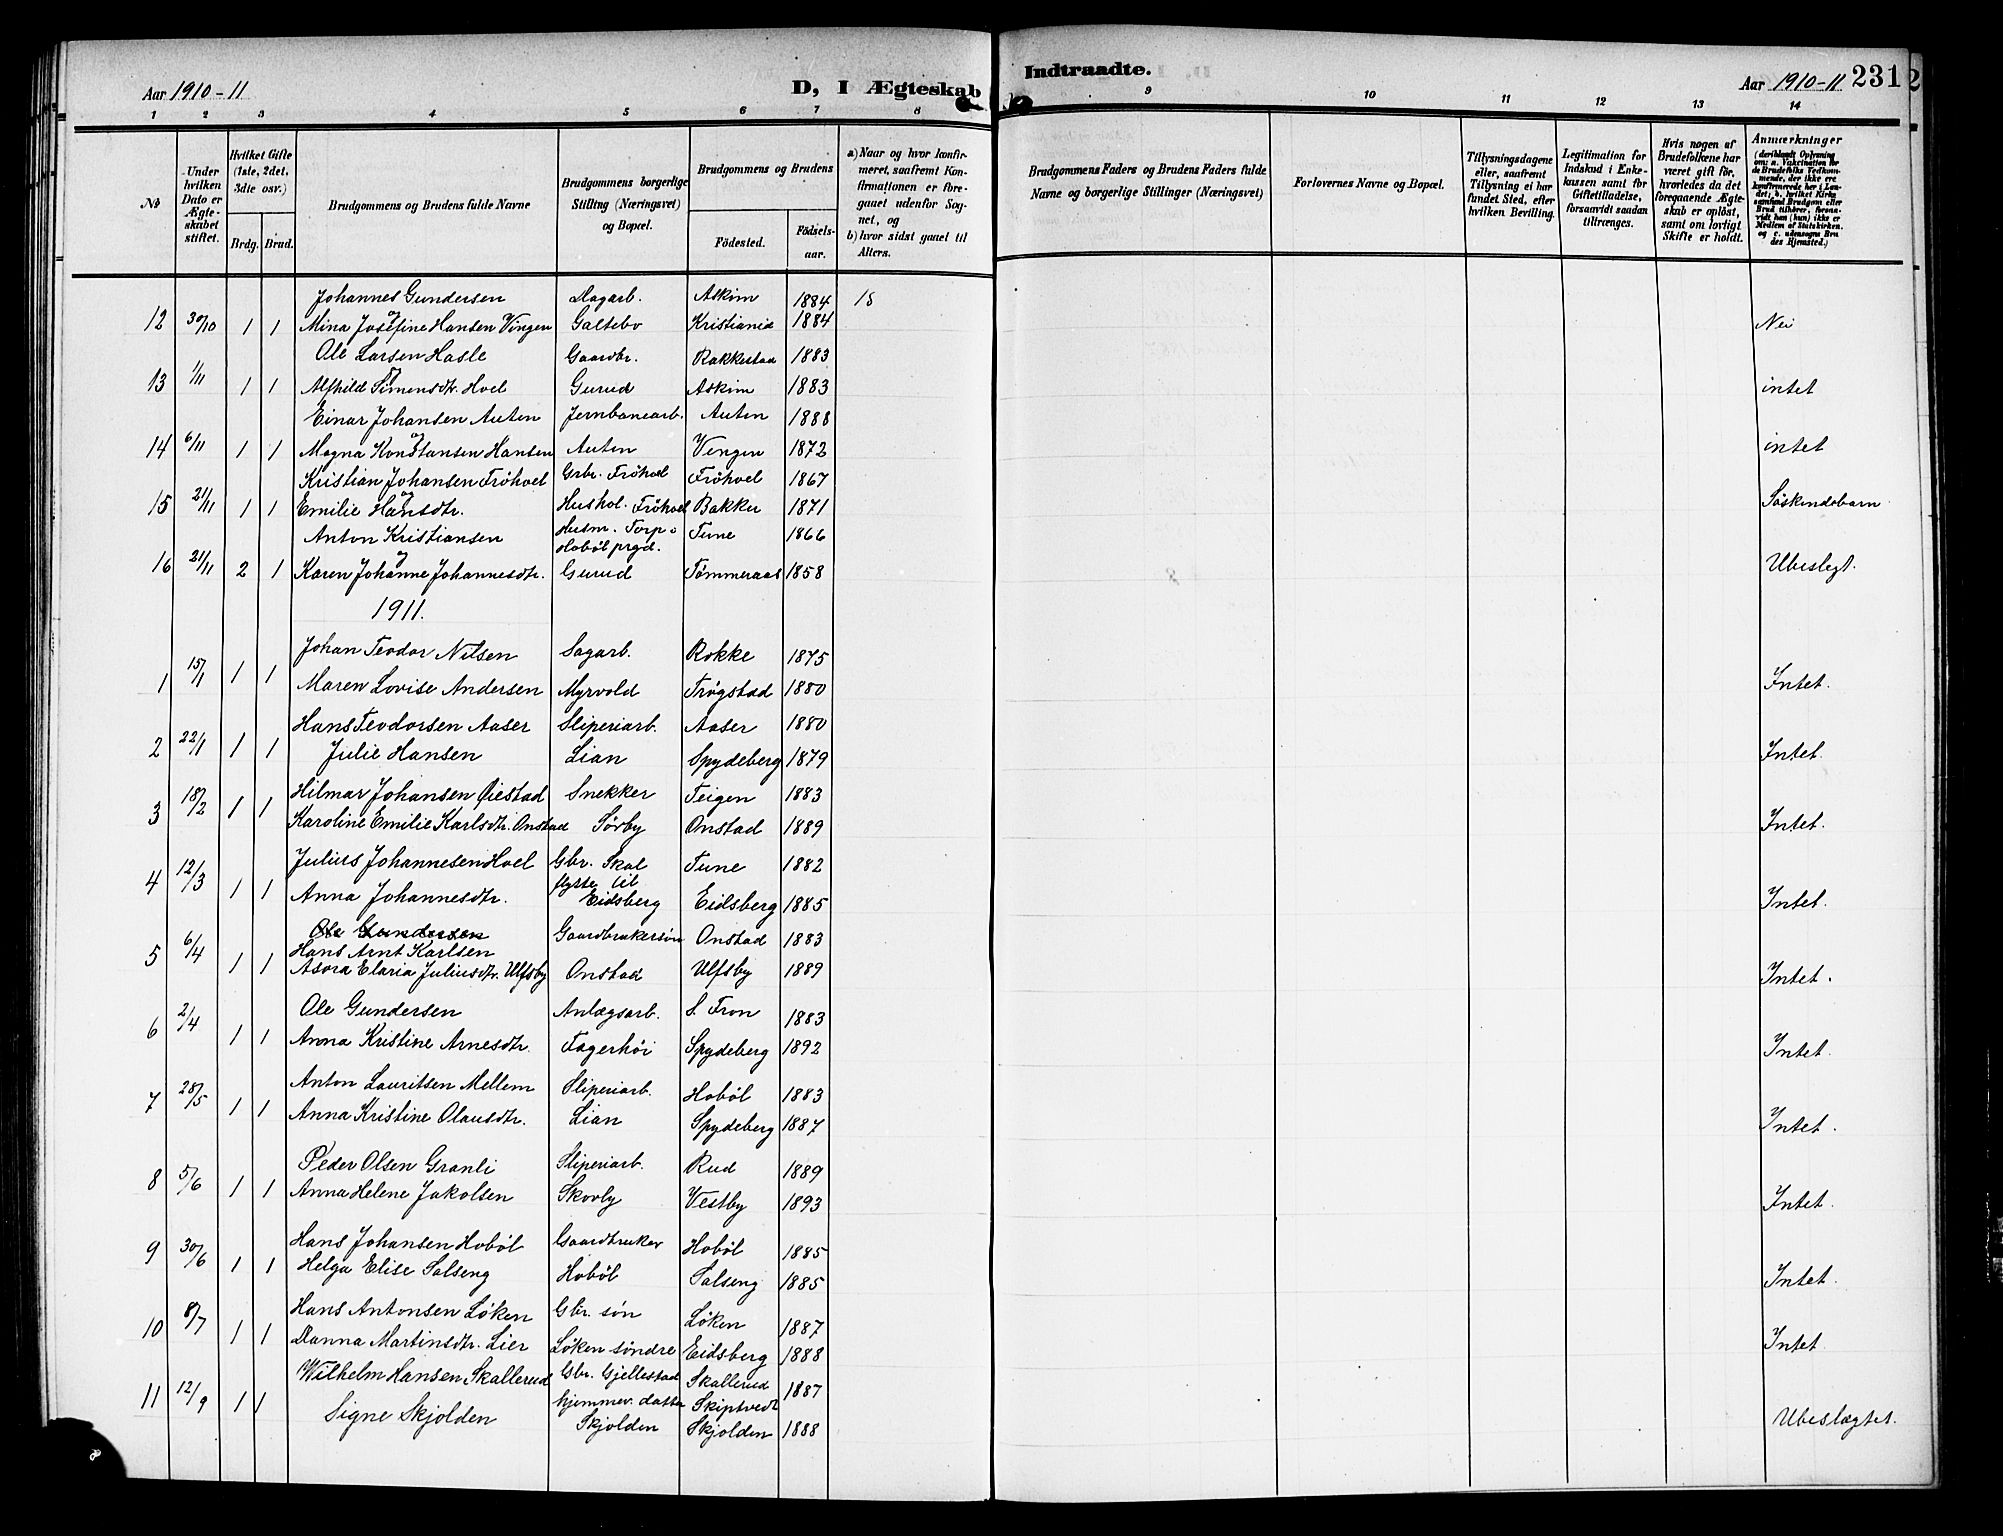 Aar 1910-11
D, I Ægteskab
Indtraadte.
Aar 1910-11
231
1 2 3 4 5 6 7 8 9 10 11 12 13 14
No
Under hvilken Dato er Ægteskabet stiftet.
Hvilket Gifte (1ste, 2det, 3die osv.)
Brdg. Brud.
Brudgommens og Brudens fulde Navne
Brudgommens borgerlige Stilling (Næringsvei) og Bopæl.
Brudgommens og Brudens
Fødested.
Fødselsaar.
a) Naar og hvor konfirmeret, saafremt Konfirmationen er foregaaet udenfor Sognet, og
b) hvor sidst gaaet til Alters.
Brudgommens Faders og Brudens Faders fulde Navne og borgerlige Stillinger (Næringsvei)
Forlovernes Navne og Bopæl.
Tillysningsdagene eller, saafremt Tillysning ei har fundet Sted, efter hvilken Bevilling.
Legitimation for Indskud i Enkekassen samt for Giftetilladelse, forsaavidt saadan tiltrænges.
Hvis nogen af Brudefolkene har været gift før, hvorledes da det foregaaende Ægteskab er opløst, samt om lovligt Skifte er holdt.
Anmærkninger
(deriblandt Oplysning om: a. Vakcination for de Brudefolks Vedkommende, der ikke ere konfirmerede her i Landet; b. hvilket Kirkesamfund Brudgom eller Brud tilhører, forsaavidt han (hun) ikke er Medlem af Statskirken. og c. udensogns Brudes Hjemsted.)
Johannes Gundersen Dagarb. Askim 1884 15
12 30/10 1 1 Mina Josefine Hansen Vingen Galtebo Kristiania 1884 Nei
Ole Larsen Hasle Gaardbr. Rakkestad 1883
13 1/11 1 1 Alfhild Simensdtr. Hoel Gurud Askim 1883 intet
Einar Johansen Auten Jernbanearb. Auten 1888
14 6/11 1 1 Magna Konstansen Hansen Auten Vengen 1872 intet
Kristian Johansen Fröhoel Grbr. Fröhoel Fröhoel 1867
15 21/11 1 1 Emilie Hansdtr. Hushol. Fröhoel Bakker 1871 Söskendebarn
Anton Kristiansen Husm. Torp Hoböl prgd. Tune 1866
16 21/11 2 1 Karen Johanne Johannesdtr. Gurud Tömmeraas 1858 Ubeslegt.
1911.
Johan Teodor Nilsen Sagarb. Rokke 1875
1 15/1 1 1 Maren Lovise Andersen Myrvold Trøgstad 1880 Intet.
Hans Teodorsen Aaser Sliperiarb. Aaser 1880
2 22/1 1 1 Julie Hansen Lian Spydeberg 1879 Intet.
Hilmar Johansen Øiestad Snekker Teigen 1883
3 18/2 1 1 Karoline Emilie Karlsdtr. Onstad Sørby Onstad 1889 Intet.
Julius Johannesen Hoel Gbr. Skal Tune 1882
4 12/3 1 1 Anna Johannesdtr. flytte til Eidsberg Eidsberg 1885 Intet.
Ole Gundersen Gaardbrukersøn Onstad 1883
Hans Arnt Karlsen
5 6/4 1 1 Asora Elaria Juliusdtr. Ulfsby Onstad Ulfsby 1889 Intet.
Ole Gundersen Anlægsarb. S. Fron 1883
6 2/4 1 1 Anna Kristine Arnesdtr. Fagerhøi Spydeberg 1892 Intet.
Anton Lauritsen Mellem Sliperiarb. Hobøl 1883
7 28/5 1 1 Anna Kristine Olausdtr. Lian Spydeberg 1887 Intet.
Peder Olsen Granli Sliperiarb. Rud 1889
8 5/6 1 1 Anna Helene Jakolsen Skovby Vestby 1893 Intet.
Hans Johansen Hobøl Gaardbruker Hobøl 1885
9 30/6 1 1 Helga Elise Solseng Hobøl Solseng 1885 Intet.
Hans Antonsen Løken Gbr. søn Løken 1887
10 8/7 1 1 Danna Martinsdtr. Lier Løken søndre Eidsberg 1888 Intet.
Wilhelm Hansen Skallerud Gbr. Gjellestad Skallerud Skiptvedt 1887
11 12/9 1 1 Signe Skjolden hjemmev. datter Skjolden Skjolden 1888 Ubeslægtet.